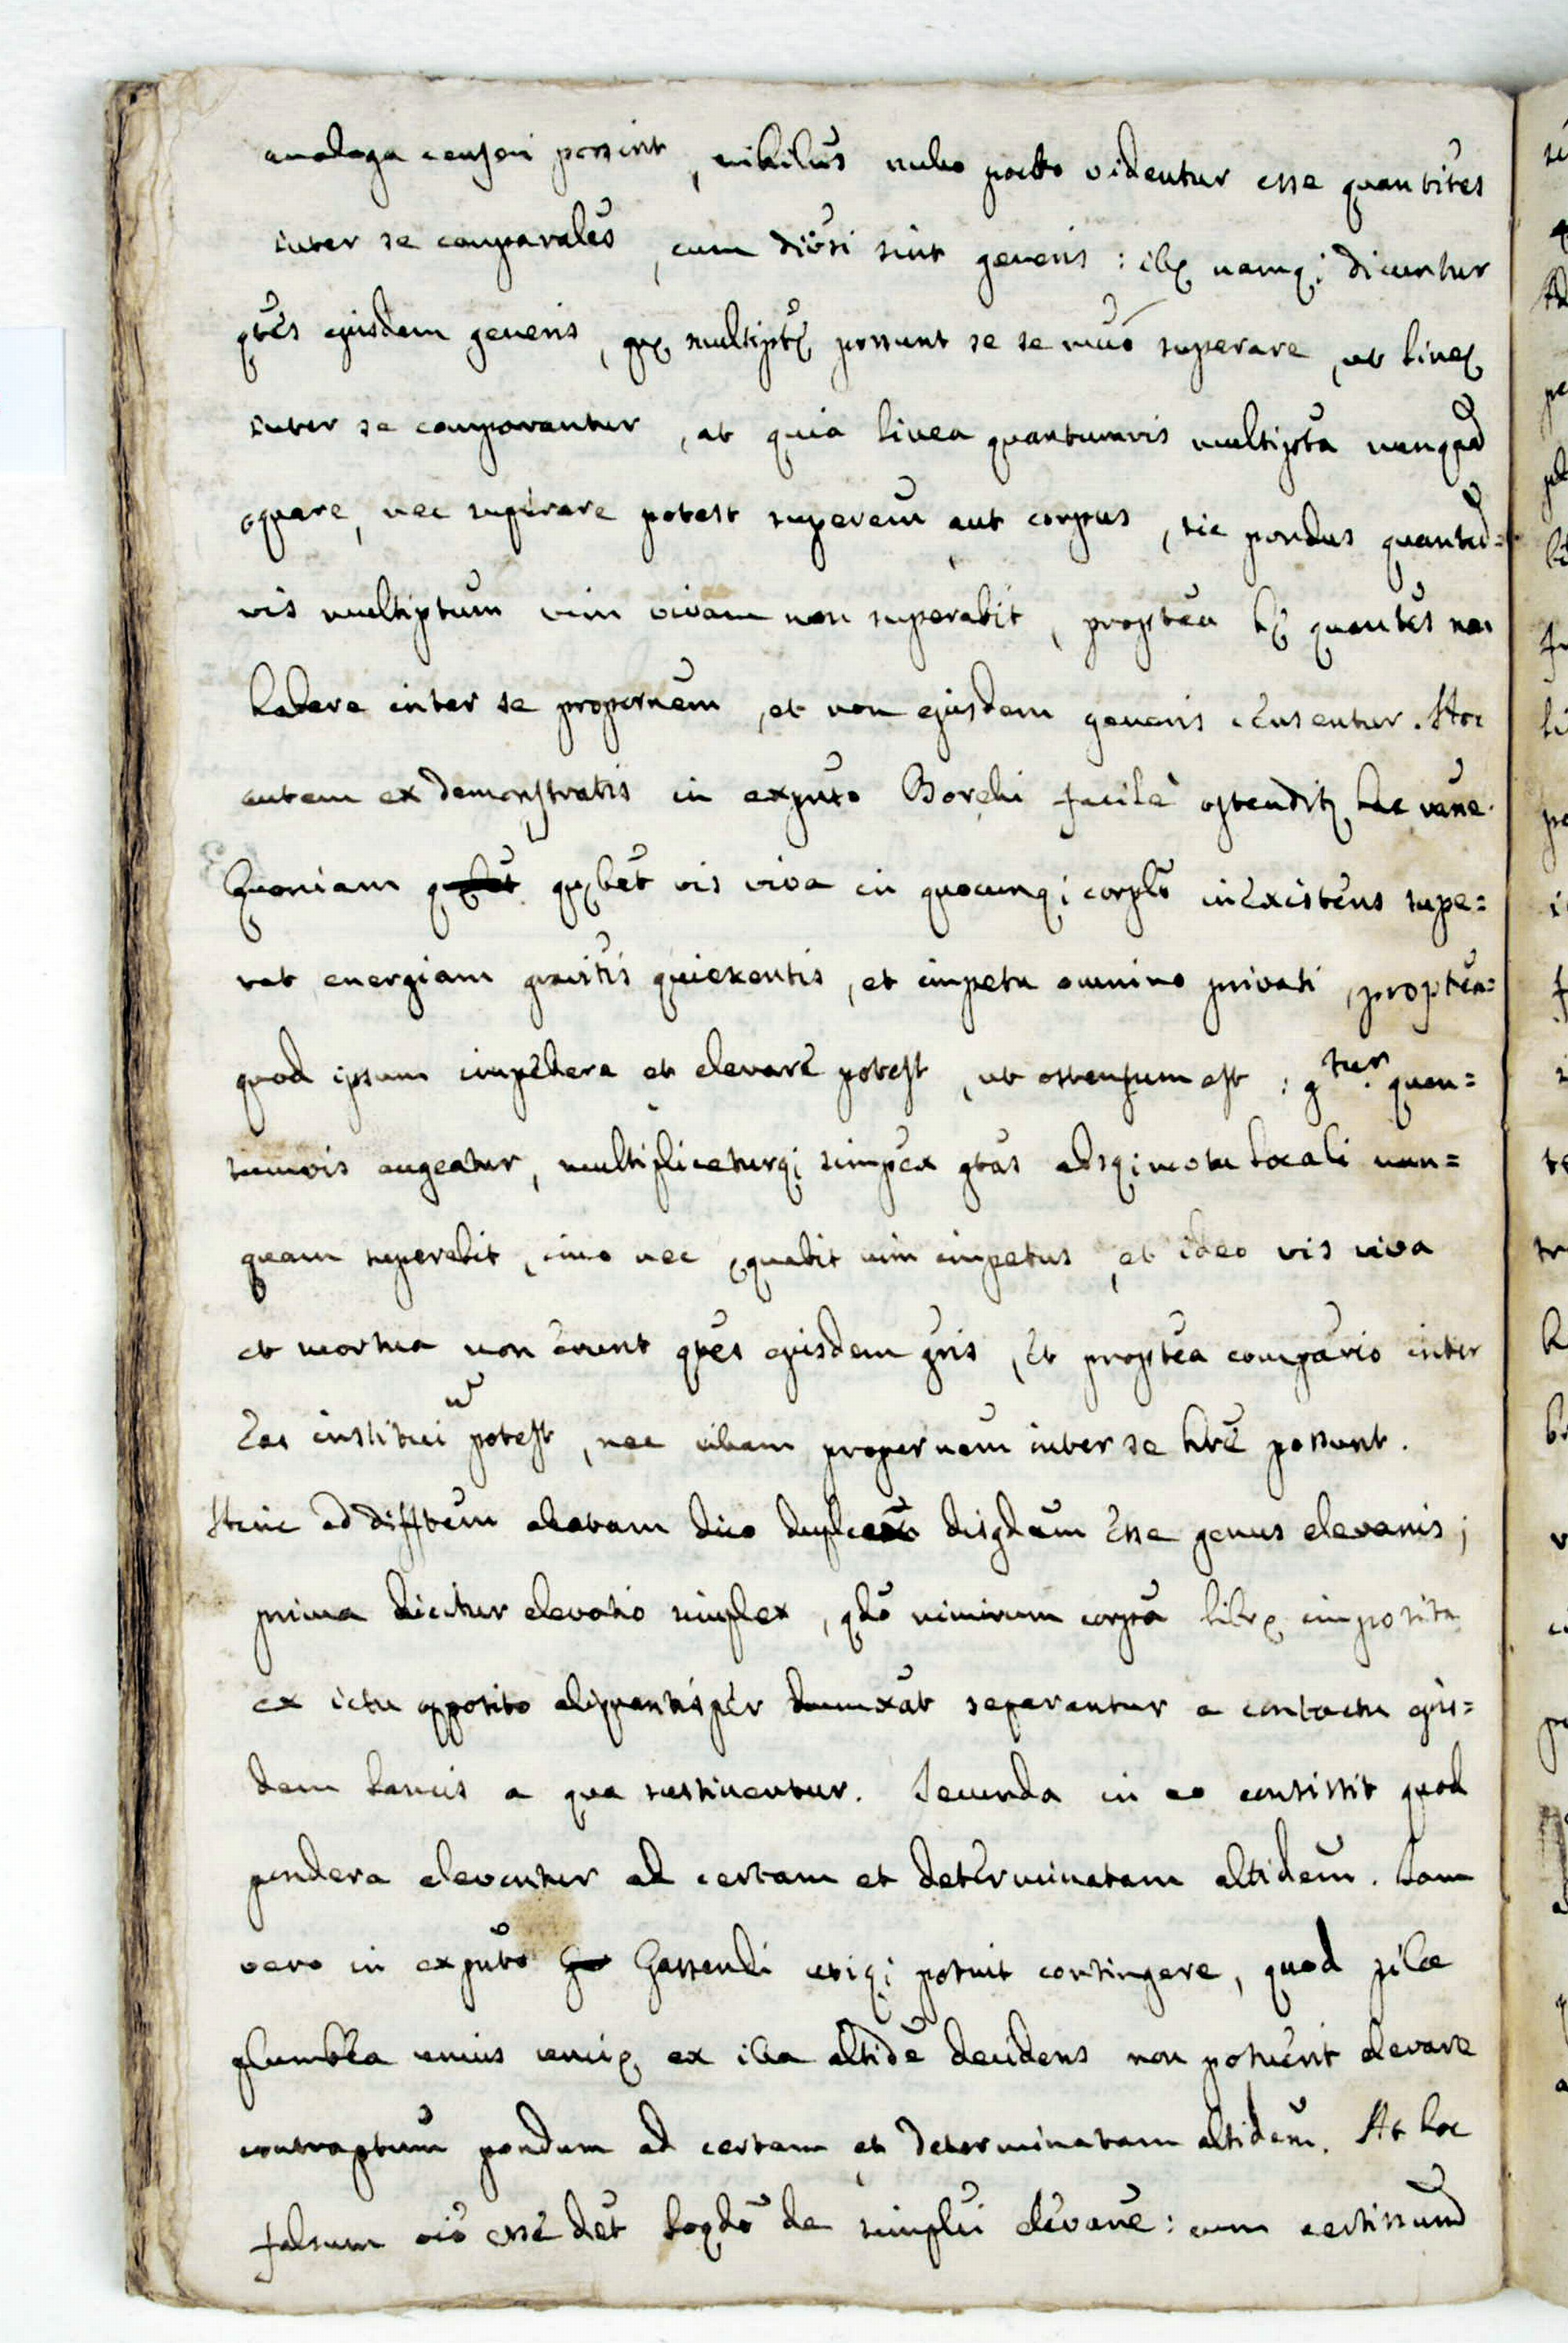 analoga censeri possint, nihilus nullo pacto videntur esse quantites
inter se comparales, cum diversi sint generis: illę namq; dicuntur
qtes ejusdem generis, quę multiptę possunt se se muo superare, ut lineę
inter se comparantur, at quia linea quantumvis multipta nunquad
ęquare, nec superare potest superem aut corpus, sic pondus quantu=
vis multiptum vim vivam non superabit, proptea hę quantes non
habere inter se propornem, et non ejusdem generis censentur. Hoc
autem ex demonstratis in exputo Borelli facilè ostenditę hac rane.
Quoniam quębet vis viva in quocunq; corpe inexistens supe=
rat energiam gravitis quiescentis, et impetu omnino privati, proptea=
quod ipsum impellere et elevare potest, ut ostensum est: gtur quan=
tumvis augeatur, multipliceturq; simpex gtas absq; motu locali nun=
quam superabit, imo nec ęquabit vim impetus, et ideo vis viva
et mortua non erunt qtes ejusdem gnis, et proptea compario inter
eas institui n potest, nec ullam propornem inter se hre possunt.
Hinc ad difftem allatam dico duplex disgdum esse genus elevanis;
prima dicitur elevatio simplex, qdo nimirum corpra librę imposita
ex ictu opposito aliquantisper dumxat separantur a contactu ejus=
dem lancis a qua sustinentur. Secunda in eo consistit quod
pondera eleventur ad certam et determinatam altidem. Iam
vero in exputo Gassendi utiq; potuit contingere, quod pila
plumbea unius uncię ex illa altide decidens non potuerit elevare
contraptum pondum ad certam et determinatam altidem. At hoc
falsum oio esse det loqdo de simplici elevane: cum certissimum